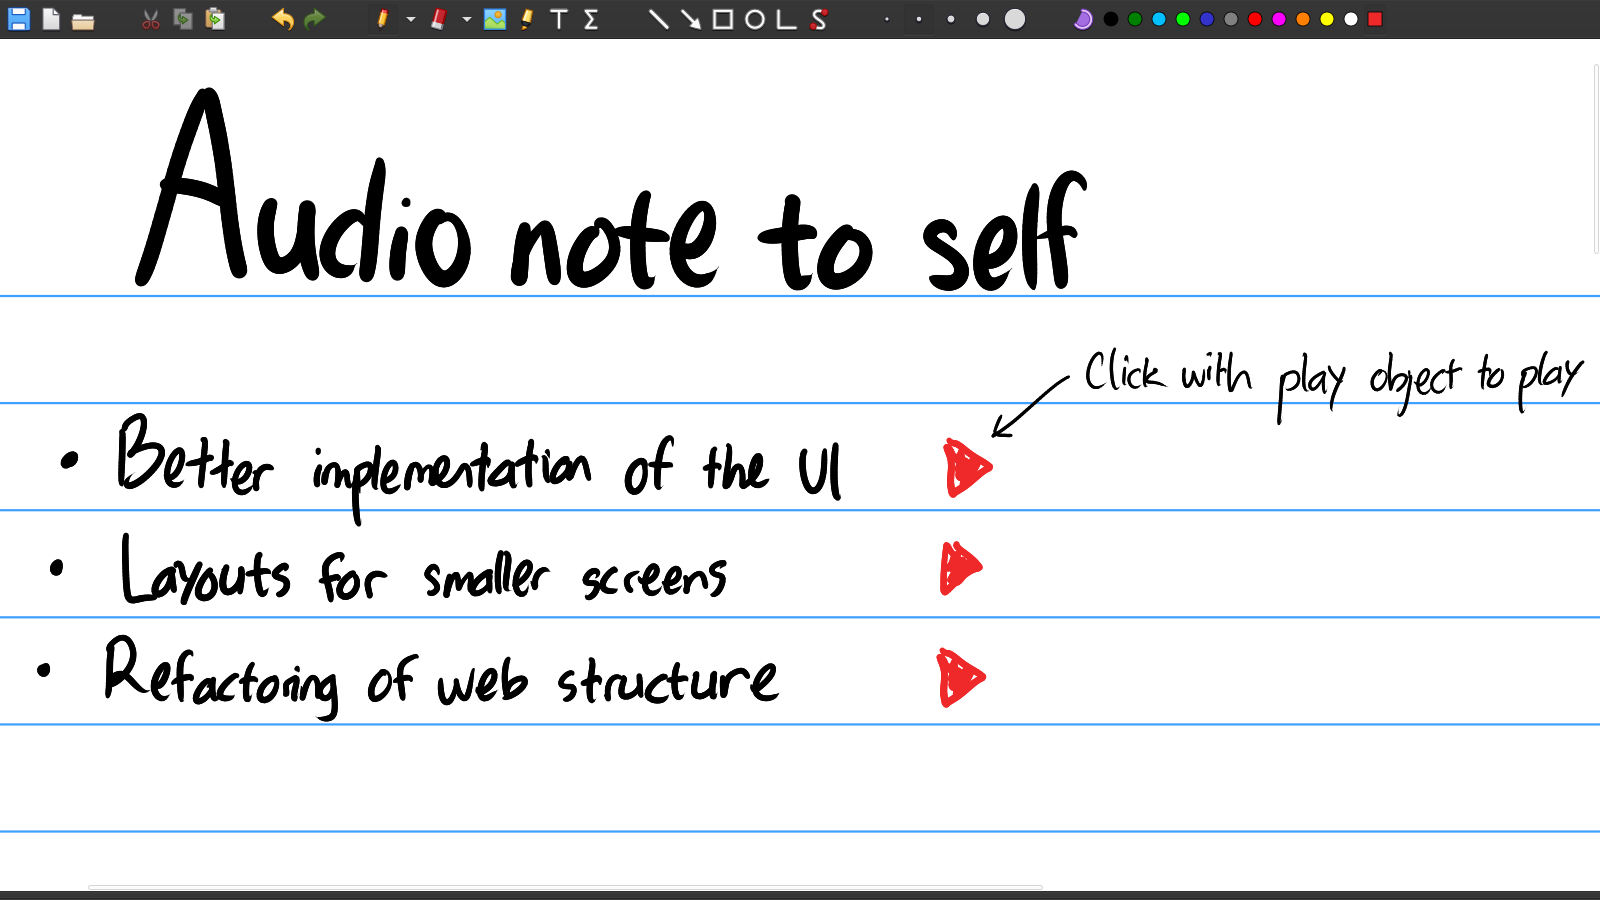 Audio note to self
Click with play object to play
• Better implementation of the UI
• Layouts for smaller screens
• Refactoring of web structure